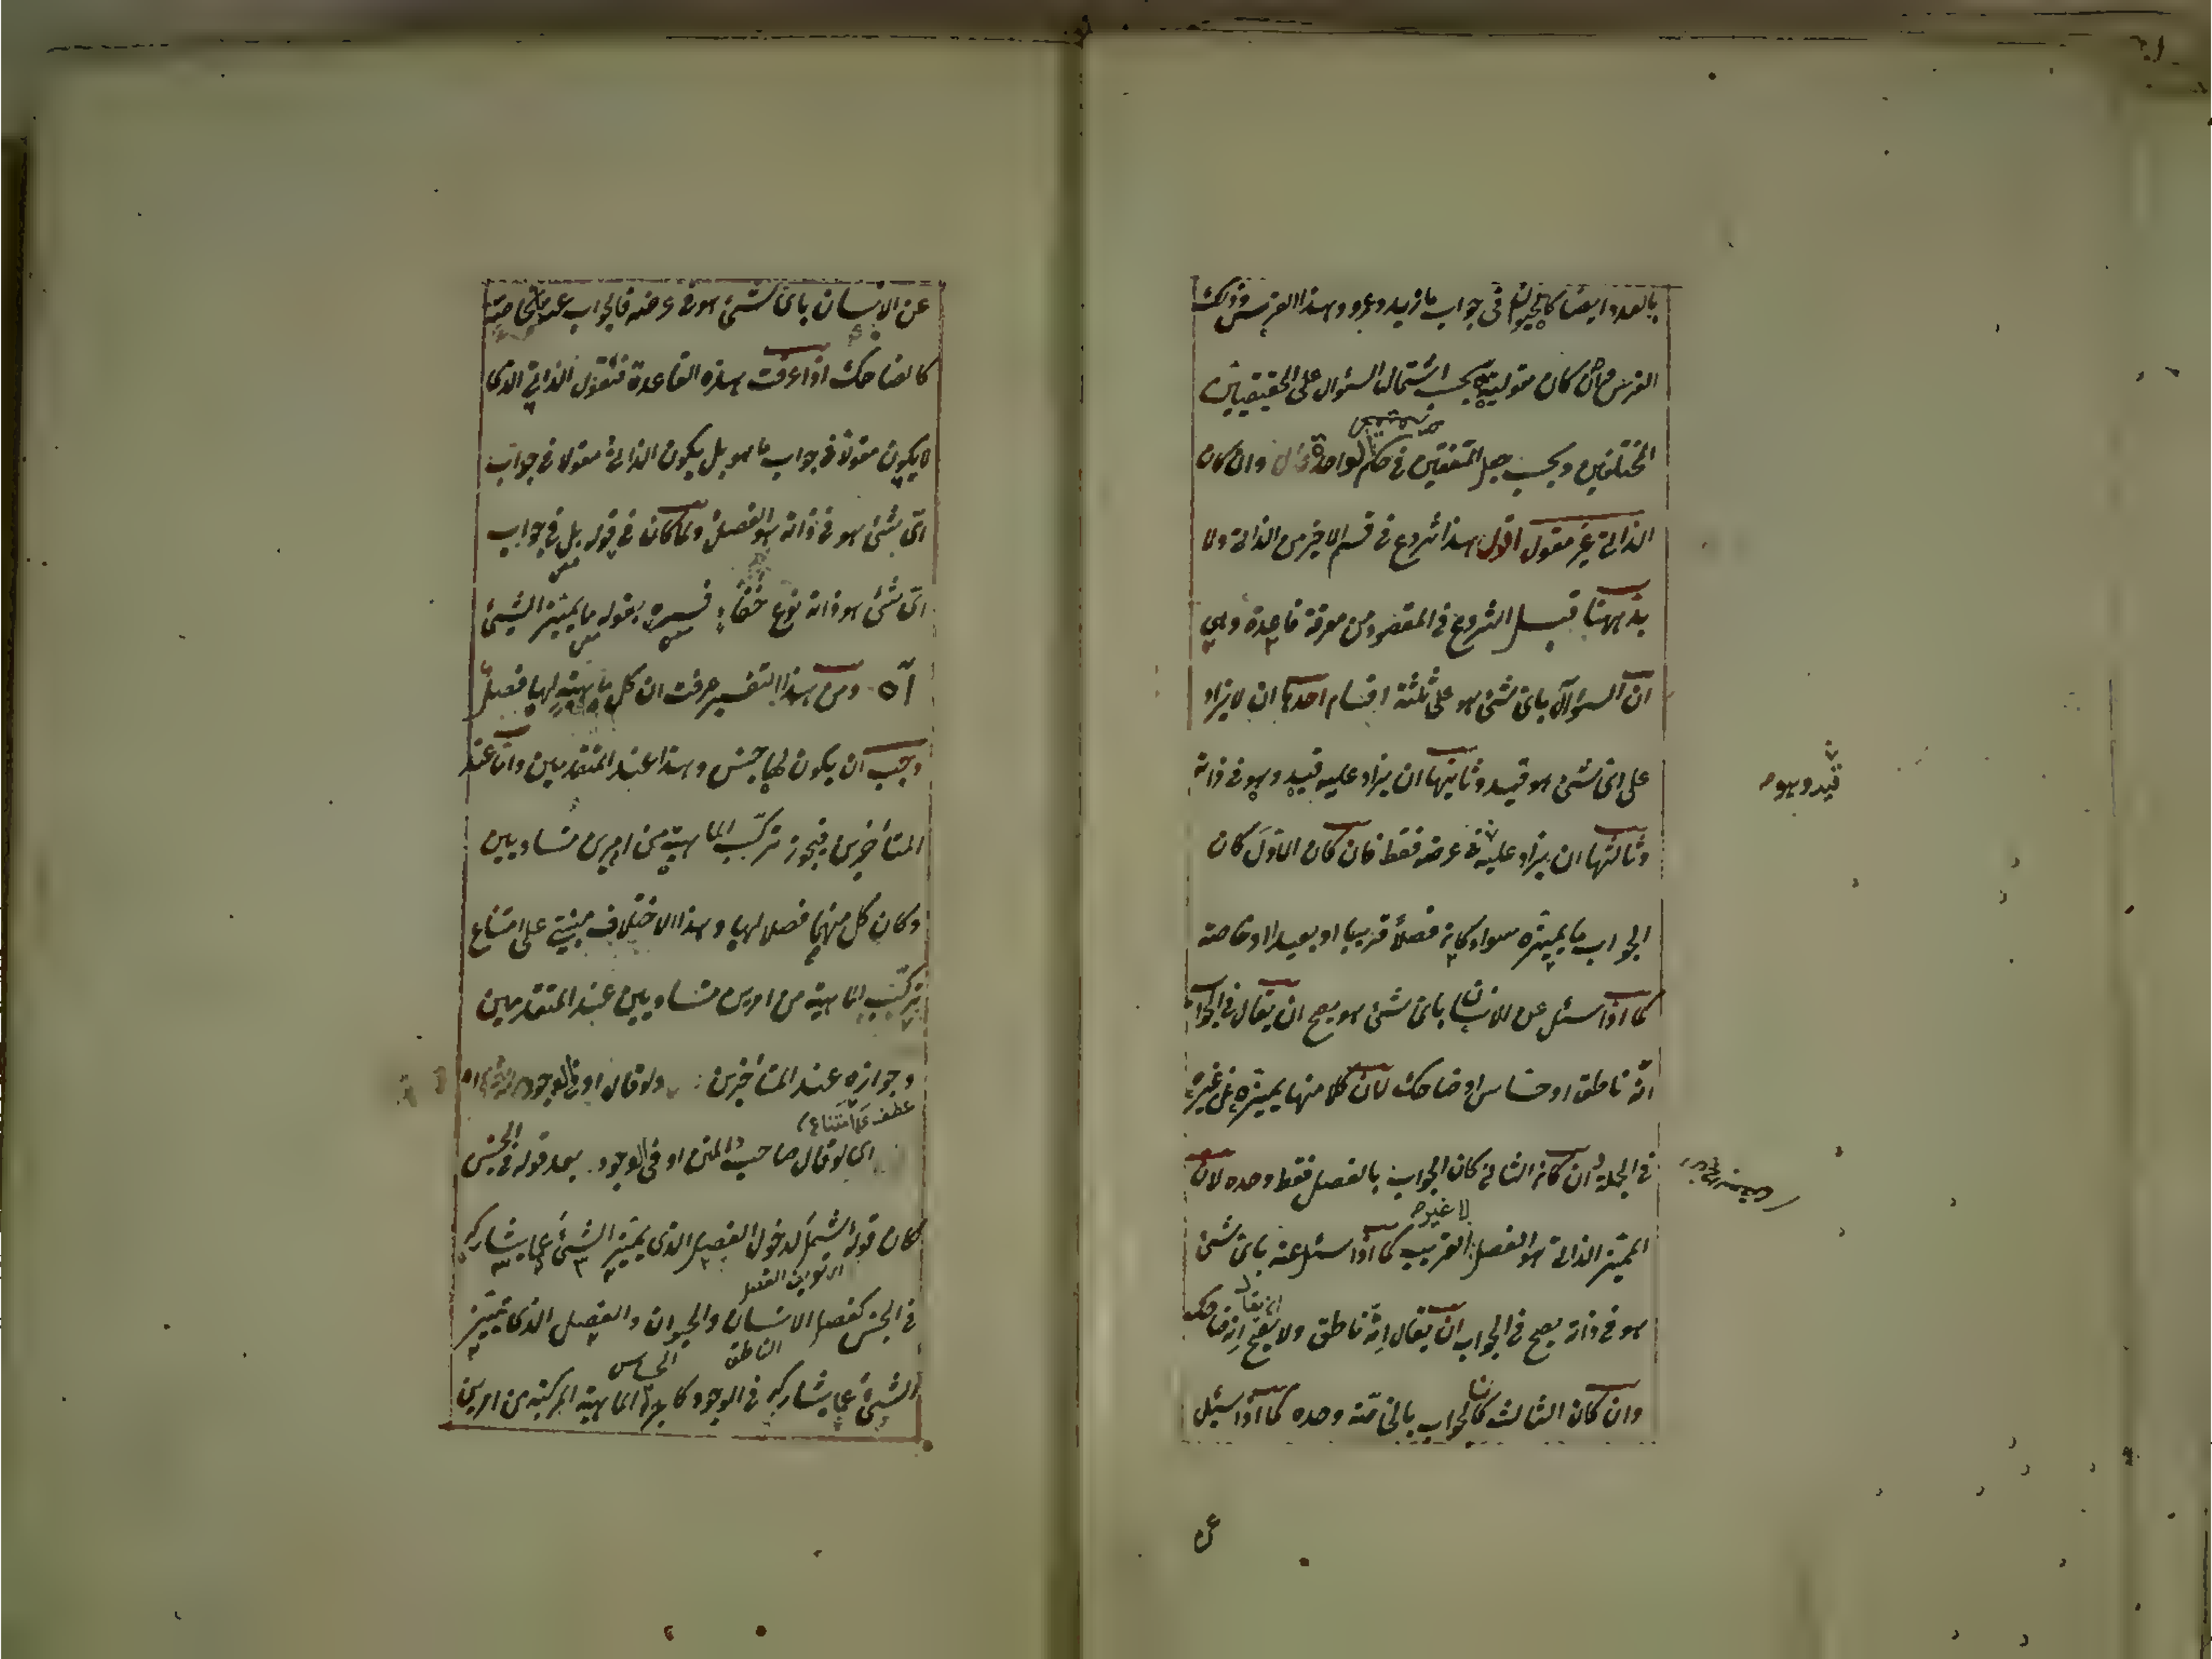 بالعدد ايضا كالحيوان فى جواب ما زيد وعمرو وهذا الفرس وذلك
الفرس وان كان مقوليته بحسب اشتمال السؤال على الحقيقتين
المختلفين وبحسب جعل المتفقتين فى حكم الواحدة قال وان كان
الذاتى غير مقول اقول هذا شروع فى قسم الاخير من الذاتى ولا
بد ههنا قبل الشروع فى المقصود من معرفة قاعدة وهى
ان السؤال باى شئ هو على ثلثة اقسام احدها ان لا يزاد
على اى شئ هو قيد وثانيتها ان يزاد عليه قيد وهو فى ذاته
قيد وهو
وثالثتها ان يزاد عليه فى عرضه فقط فان كان الاول كان
الجواب ما يميزه سواء كان فصلا قريبا او بعيدا او خاصته
كما اذا سئل عن الانسان باى شئ هو يصح ان يقال فى الجواب
انه ناطق او حساس او ضاحك لان كلا منها يميزه عن غيره
فى الجملة وان كان الثانى كان الجواب بالفصل فقط وحده لان
لا غير
المميز الذاتى هو الفصل القريب كما اذا سئل عنه باى شئ
هو فى ذاته يصح فى الجواب ان يقال انه ناطق ولا يصح ان يقال انه ضاحك
وان كان الثالث كان الجواب بالخاصة وحده كما اذا سئل
عن
عن الانسان باى شئ هو فى عرضه فالجواب عنه بخاصته
كالضاحك اذا عرفت هذه القاعدة فنقول الذاتى الذى
لا يكون مقولا فى جواب ما هو بل يكون الذاتى مقولا فى جواب
اى شئ هو فى ذاته هو الفصل ولما كان فى قوله بل فى جواب
اى شئ هو ذاته نوع خفاء فسره بقوله ما يميز الشئ
آه ومن هذا التفسير عرفت ان كل ماهية لها فصل
وجب ان يكون لها جنس وهذا عند المتقدمين واما عند
المتأخرين فيجوز تركب الماهية من امرين متساويين
وكان كل منهما فصلا لها وهذا الاختلاف مبنى على امتناع
تركب الماهية من امرين متساويين عند المتقدمين
وجوازه عند المتأخرين ولو قال او فى الوجود
عطف على امتناع
اى لو قال صاحب المتن او فى الوجود بعد قوله فى الجنس
لكان قوله اشمل لدخول الفصل الذى يميز الشئ عما يشاركه
فى الجنس كفصل الانسان والحيوان والفصل الذى يميز
الناطق الحساس
الشئ عما يشاركه فى الوجود كاجزاء الماهية المركبة من امرين